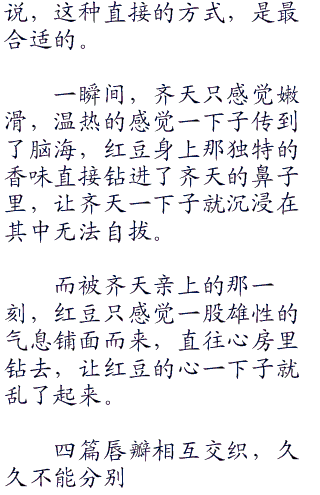 说，这种直接的方式，是最
合适的。
一瞬间，齐天只感觉嫩
滑，温热的感觉一下子传到
了脑海，红豆身上那独特的
香味直接钻进了齐天的鼻子
里，让齐天一下子就沉浸在
其中无法自拔。
而被齐天亲上的那一
刻，红豆只感觉一股雄性的
气息铺面而来，直往心房里
钻去，让红豆的心一下子就
乱了起来。
四篇唇瓣相互交织，久
久不能分别